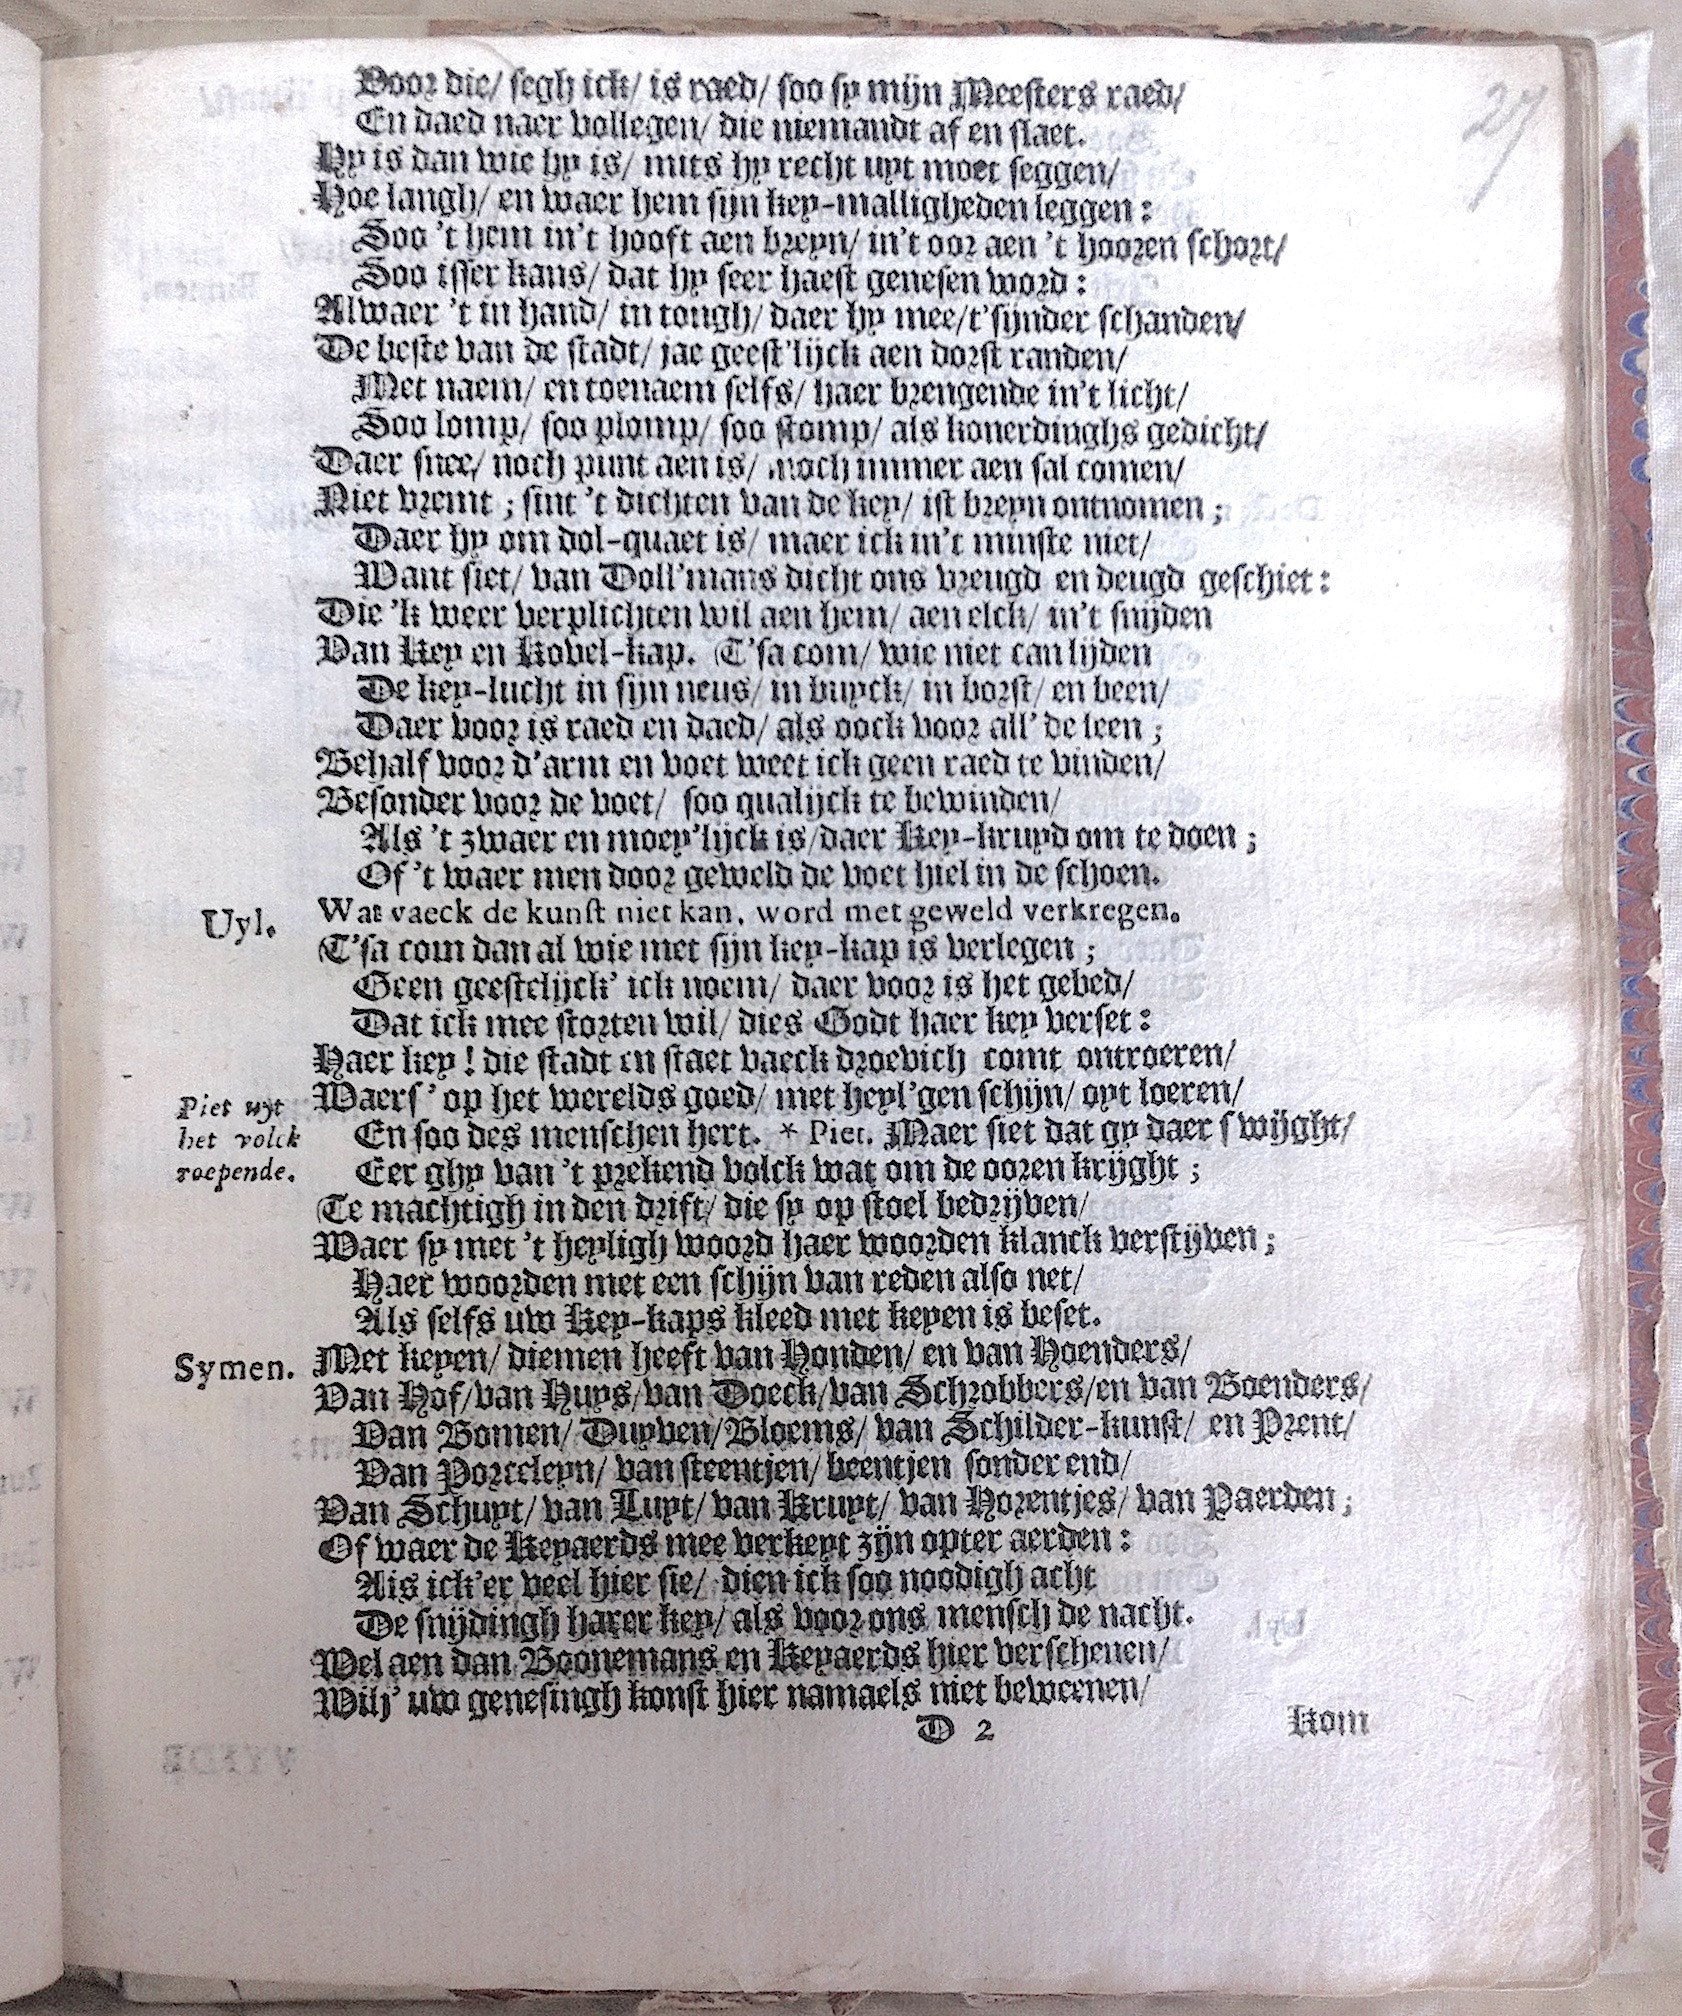 27
Voor die/ segh ick/ is raed/ soo sy mijn Meesters raed/
En daed naer vollegen/ die niemandt af en slaet.
Hy is dan wie hy is/ mits hy recht uyt moet seggen/
Hoe langh/ en waer hem sijn key-malligheden leggen:
Soo 't hem in't hooft aen breyn/ in't oor aen 't hooren schort/
Soo isser kans/ dat hy seer haest genesen word:
Alwaer 't in hand/ in tongh/ daer hy mee/t'sijnder schanden/
De beste van de stadt/ jae geest'lijck aen dorst randen/
Met naem/ en toenaem selfs/ haer brengende in't licht/
Soo lomp/ soo plomp/ soo stomp/ als konerdinghs gedicht/
Daer snee/ noch punt aen is/ noch immer aen sal comen/
Niet vremt; sint 't dichten van de key/ ist breyn ontnomen;
Daer hy om dol-quaet is/ maer ick in't minste niet/
Want siet/ van Doll'mans dicht ons vreugd en deugd geschiet:
Die 'k weer verplichten wil aen hem/ aen elck/ in't snijden
Van Key en Kovel-kap. T'sa com/ wie niet can lijden
De key-lucht in sijn neus/ in buyck/ in borst/ en been/
Daer voor is raed en daed/ als oock voor all' de leen;
Behalf voor d'arm en voet weet ick geen raed te vinden/
Besonder voor de voet/ soo qualijck te bewinden/
Als 't zwaer en moey'lijck is/daer Key-kruyd om te doen;
Of 't waer men door geweld de voet hiel in de schoen.
Uyl. Wat vaeck de kunst niet kan, word met geweld verkregen.
T'sa com dan al wie met sijn key-kap is verlegen;
Geen geestelijck' ick noem/ daer voor is het gebed/
Dat ick mee storten wil/ dies Godt haer key verset:
Haer key! die stadt en staet vaeck droevich comt ontroeren/
Piet uyt Waers' op het werelds goed/ met heyl'gen schijn/ oyt loeren/
het volck En soo des menschen hert. * Piet. Maer siet dat gy daer swijght/
roepende. Eer ghy van 't prekend volck wat om de ooren krijght;
Te machtigh in den drift/ die sy op stoel bedrijven/
Waer sy met 't heyligh woord haer woorden klanck verstijven;
Haer woorden met een schijn van reden also net/
Als selfs uw Key-kaps kleed met keyen is beset.
Symen. Met keyen/ diemen heeft van Honden/ en van Hoenders/
Van Hof/van Huys/van Doeck/van Schrobbers/en van Boenders/
Van Bomen/ Duyven/Bloems/ van Schilder-kunst/ en Prent/
Van Porceleyn/ van steentjen/ beentjen sonder end/
Van Schuyt/ van Luyt/ van Kruyt/ van Horentjes/ van Paerden;
Of waer de Keyaerds mee verkeyt zijn opter aerden:
Als ick'er veel hier sie/ dien ick soo noodigh acht
De snijdingh harer key/ als voor ons mensch de nacht.
Wel aen dan Boonemans en Keyaerds hier verschenen/
Wilj' uw genesingh konst hier namaels niet beweenen/
D 2 Kom